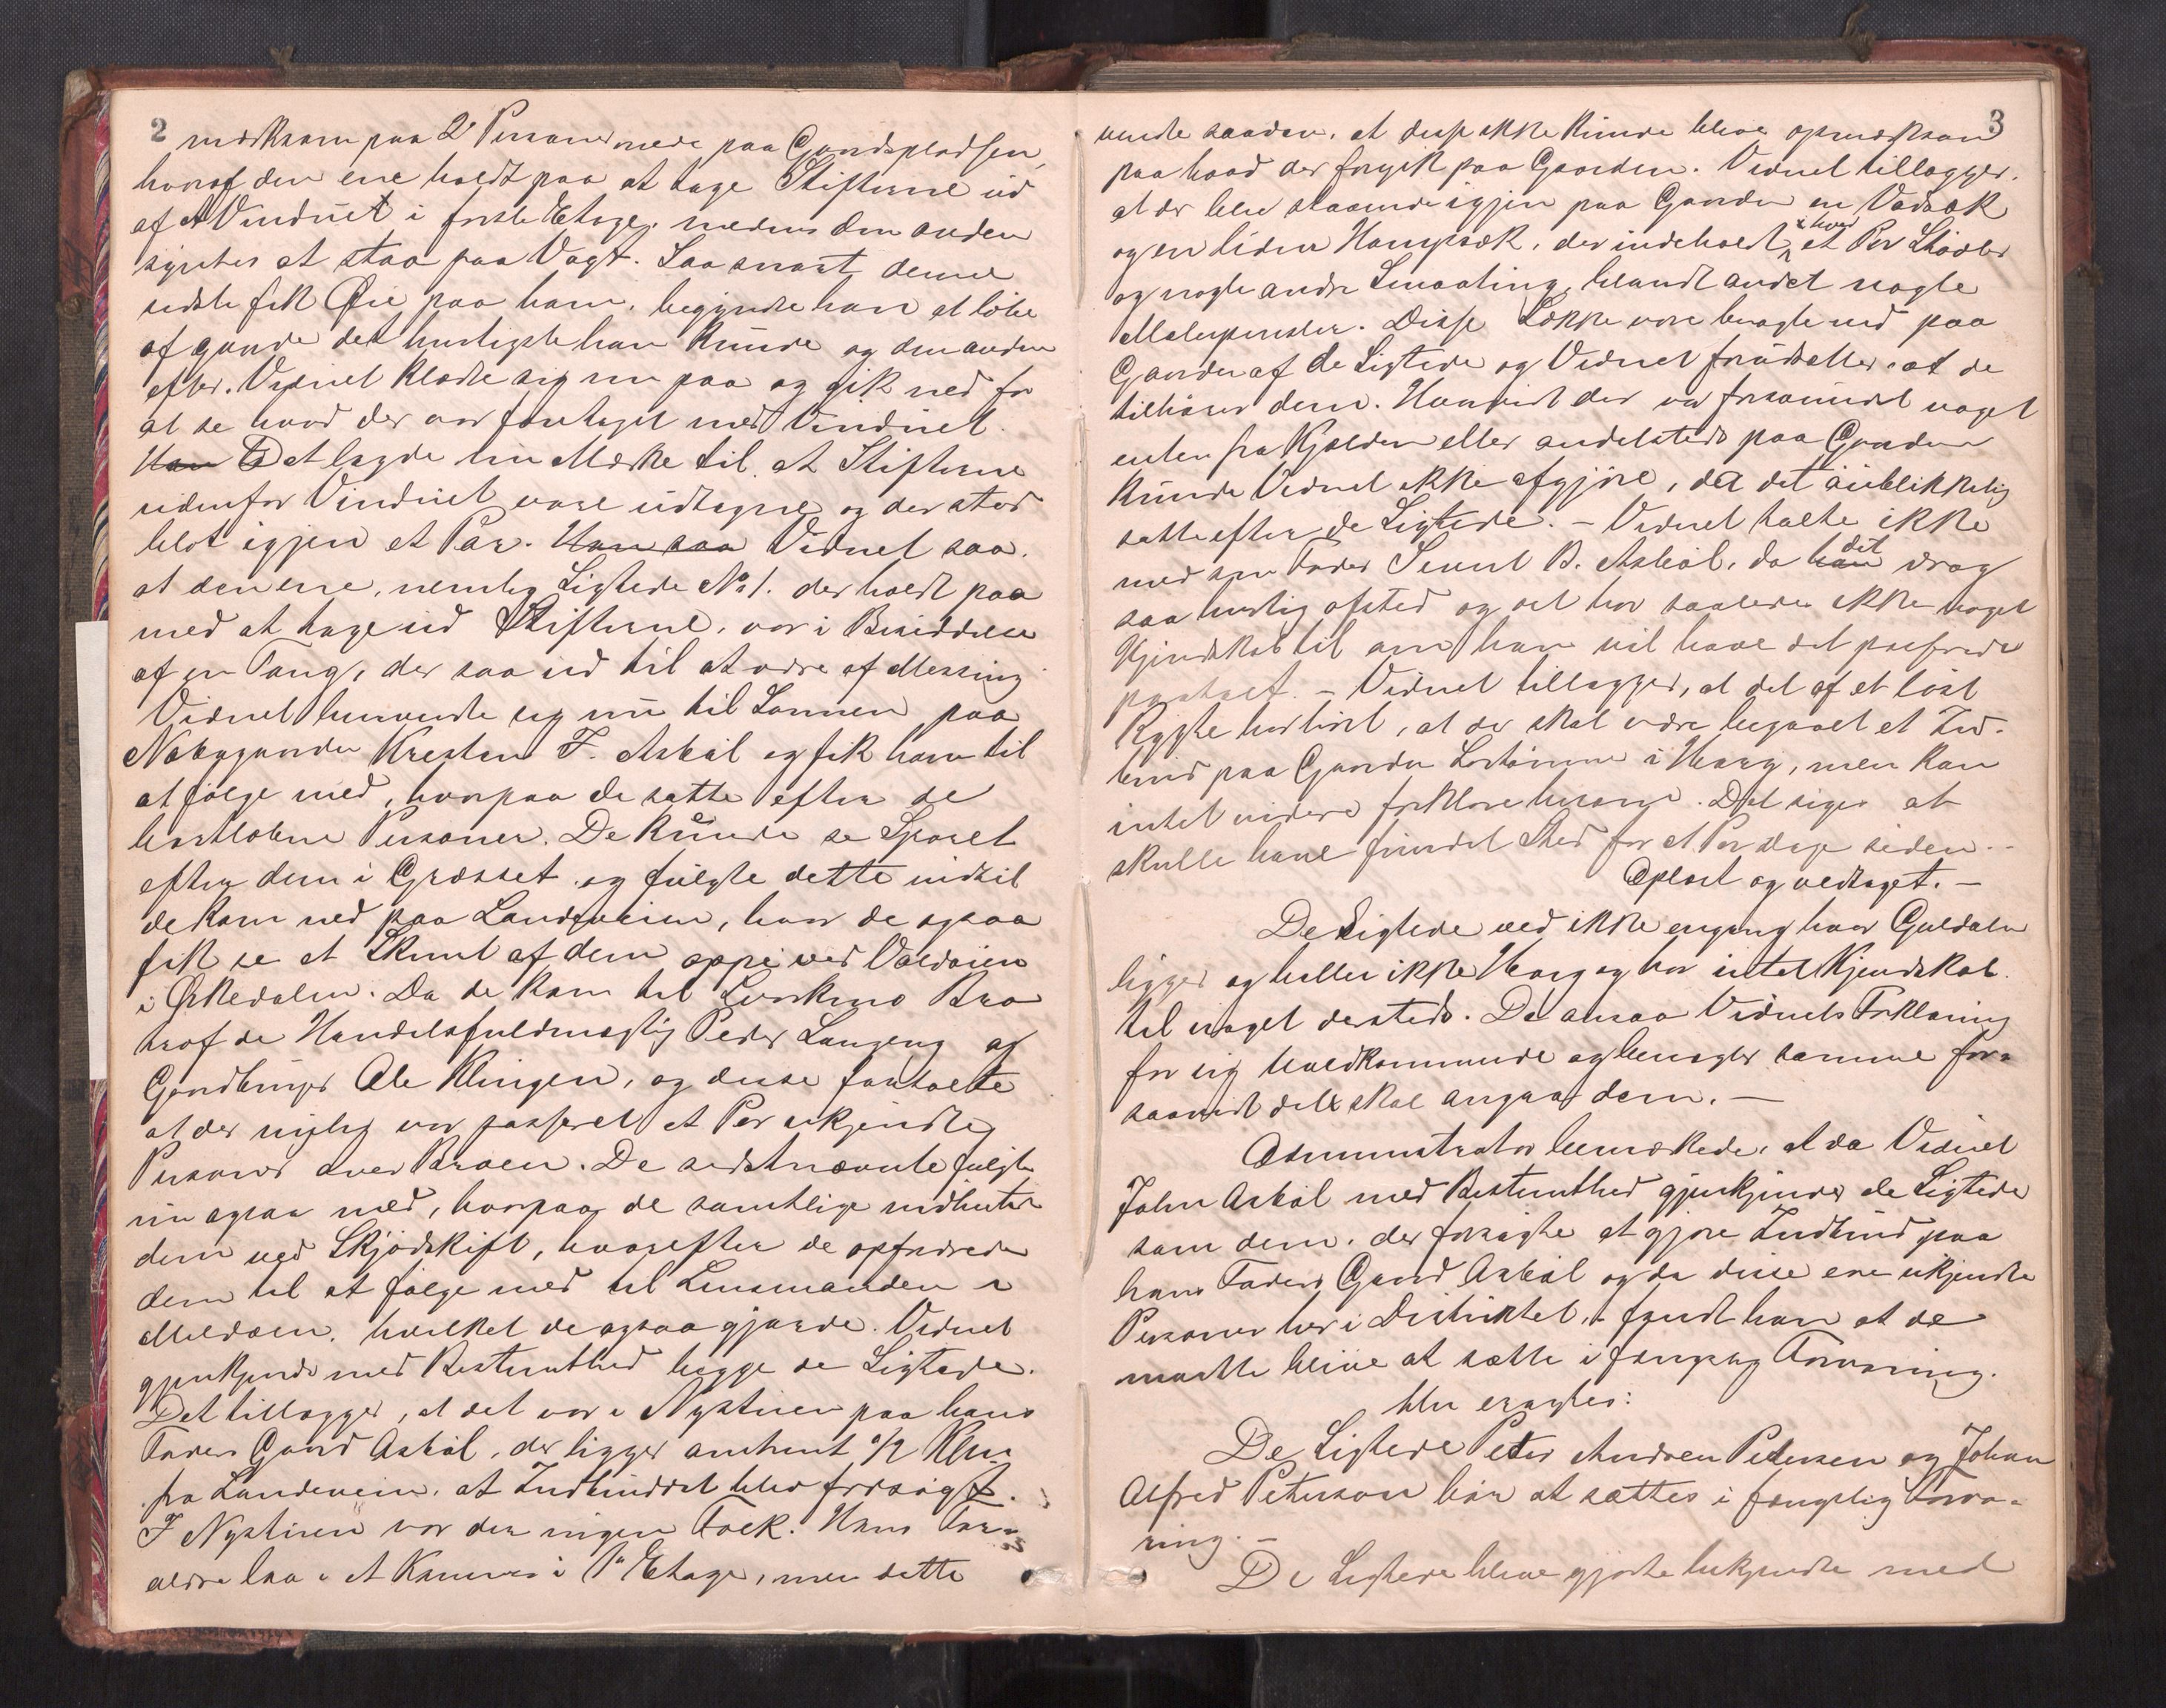 2
mærksom paa 2 Personer nede paa Gaardspladsen,
hvoraf den ene holdt paa at tage Stifterne ud
af et Vinduet i første Etage, medens den anden
syntes at staa paa Vagt. Saasnart denne
sidste fik Øie paa ham, begyndte han at løbe
afgaarde det hurtigste han kunde og den anden
efter. Vidnet klædte sig nu paa og gik ned for
at se hvad der var foretaget med Vinduet.
Han Det lagde nu Mærke til at Stifterne
udenfor Vinduet vare udtagne og der stod
blot igjen et Par. Han saa Vidnet saa,
at den ene, nemlig Sigtede No 1. der holdt paa
med at tage ud Stifterne, var i Besiddelse
af en Tang, der saa ud til at være af Messing
Vidnet henvendte sig nu til Sønnen paa
Nabogaarden Kresten T. Asbøl og fik ham til
at følge med, hvorpaa de satte efter de
bortløbne Personer. De kunde se Sporet
efter dem i Græsset og fulgte dette indtil
de kom ned paa Landeveien, hvor de ogsaa
fik se et Skimt af dem oppe ved Voldøien
i Ørkedalen. Da de kom til Bro
traf de Handelsfuldmægtig Peder Langeng og
Gaardbruger Ole Klingen, og disse fortalte
at der nylig var passeret et Par ukjendte
Personer over Broen. De sidstnævnte fulgte
nu ogsaa med, hvorpaa de samtlige indhentede
dem ved Skjødskift, hvorefter de opfordrede
dem til at følge med til Lensmanden i
Meldalen, hvilket de ogsaa gjorde. Vidnet
gjenkjende med Bestemthed begge de Sigtede.
Det tillægger, at det var i Nystuen paa hans
Faders Gaard Asbøl, der ligger omtrent 1/2 Klm.
fra Landeveien, at Indbruddet blev forsøgt.
I Nystuen var der ingen Folk. Hans For-
ældre laa i et Kammer i 1ste Etage, men dette
3
vendte saadan, at disse ikke kunde blive opmærksom
paa hvad der foregik paa Gaarden. Vidnet tillægger,
at der blev staaende igjen paa Gaarden en Vadsæk
og en liden Hampsæk, der indeholdt i hver et Par Støvler
og nogle andre Smaating, blandt andet nogle
Malerpensler. Disse Sække vare bragte ned paa
Gaarden af de Sigtede og Vidnet forudsætter at de
tilhører dem. Hvorvidt der var forsvundet noget
enten fra Kjælderen eller andetsteds paa Gaarden
kunde Vidnet ikke afgjøre, da det øieblikkelig
satte efter de Sigtede. – Vidnet talte ikke
med sin Fader Sivert B. Asbøl, da han det drog
saa hurtig afsted og det har saaledes ikke noget
Kjendskab til om han vil have det passerede
paatalt. – Vidnet tillægger, at det af et løst
Rygte har hørt, at der skal være begaaet et Ind-
brud paa Gaarden i Hoang, men kan
intet videre forklare herom. Det siges at
skulle have fundet Sted for et Par dage siden. –
Oplæst og vedtaget. –
De Sigtede ved ikke engang hvor Guldalen
ligger og heller ikke Hoang og har intet Kjendskab
til noget dersteds. De ansaa Vidnets Forklaring
for sig uvedkommende og benægter samme for-
saavidt det skal angaa dem. –
Administrator bemærkede, at da Vidnet
John Asbøl med Bestemthed gjenkjender de Sigtede
som dem, der forsøgte at gjøre Indbrud paa
hans Faders Gaard Asbøl og da disse ere ukjendte
Personer her i Distriktet, fandt han at de
maatte blive at sætte i fængslig Forvaring.
blev eragtes:
De Sigtede Peter Andreas Petersen og Johan
Alfred Peterson bør at sættes i fængslig Forva-
ring. –
De Sigtede bleve gjorte bekjendte med